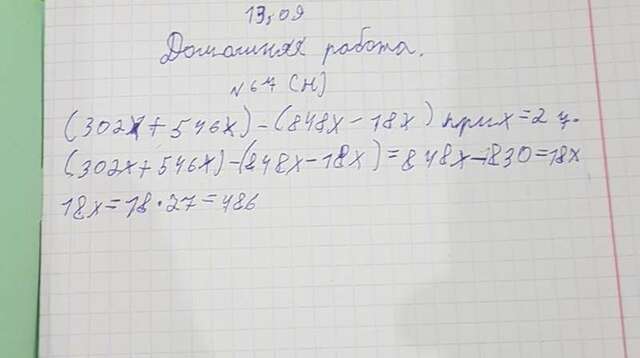 13,09
Домашняя работа.
№ 67 (Н)
(302x+546x)-(848x-18x) при x=27.
(302x+546x)-(848x-18x)=848x-830=18x
18x=18·27=486